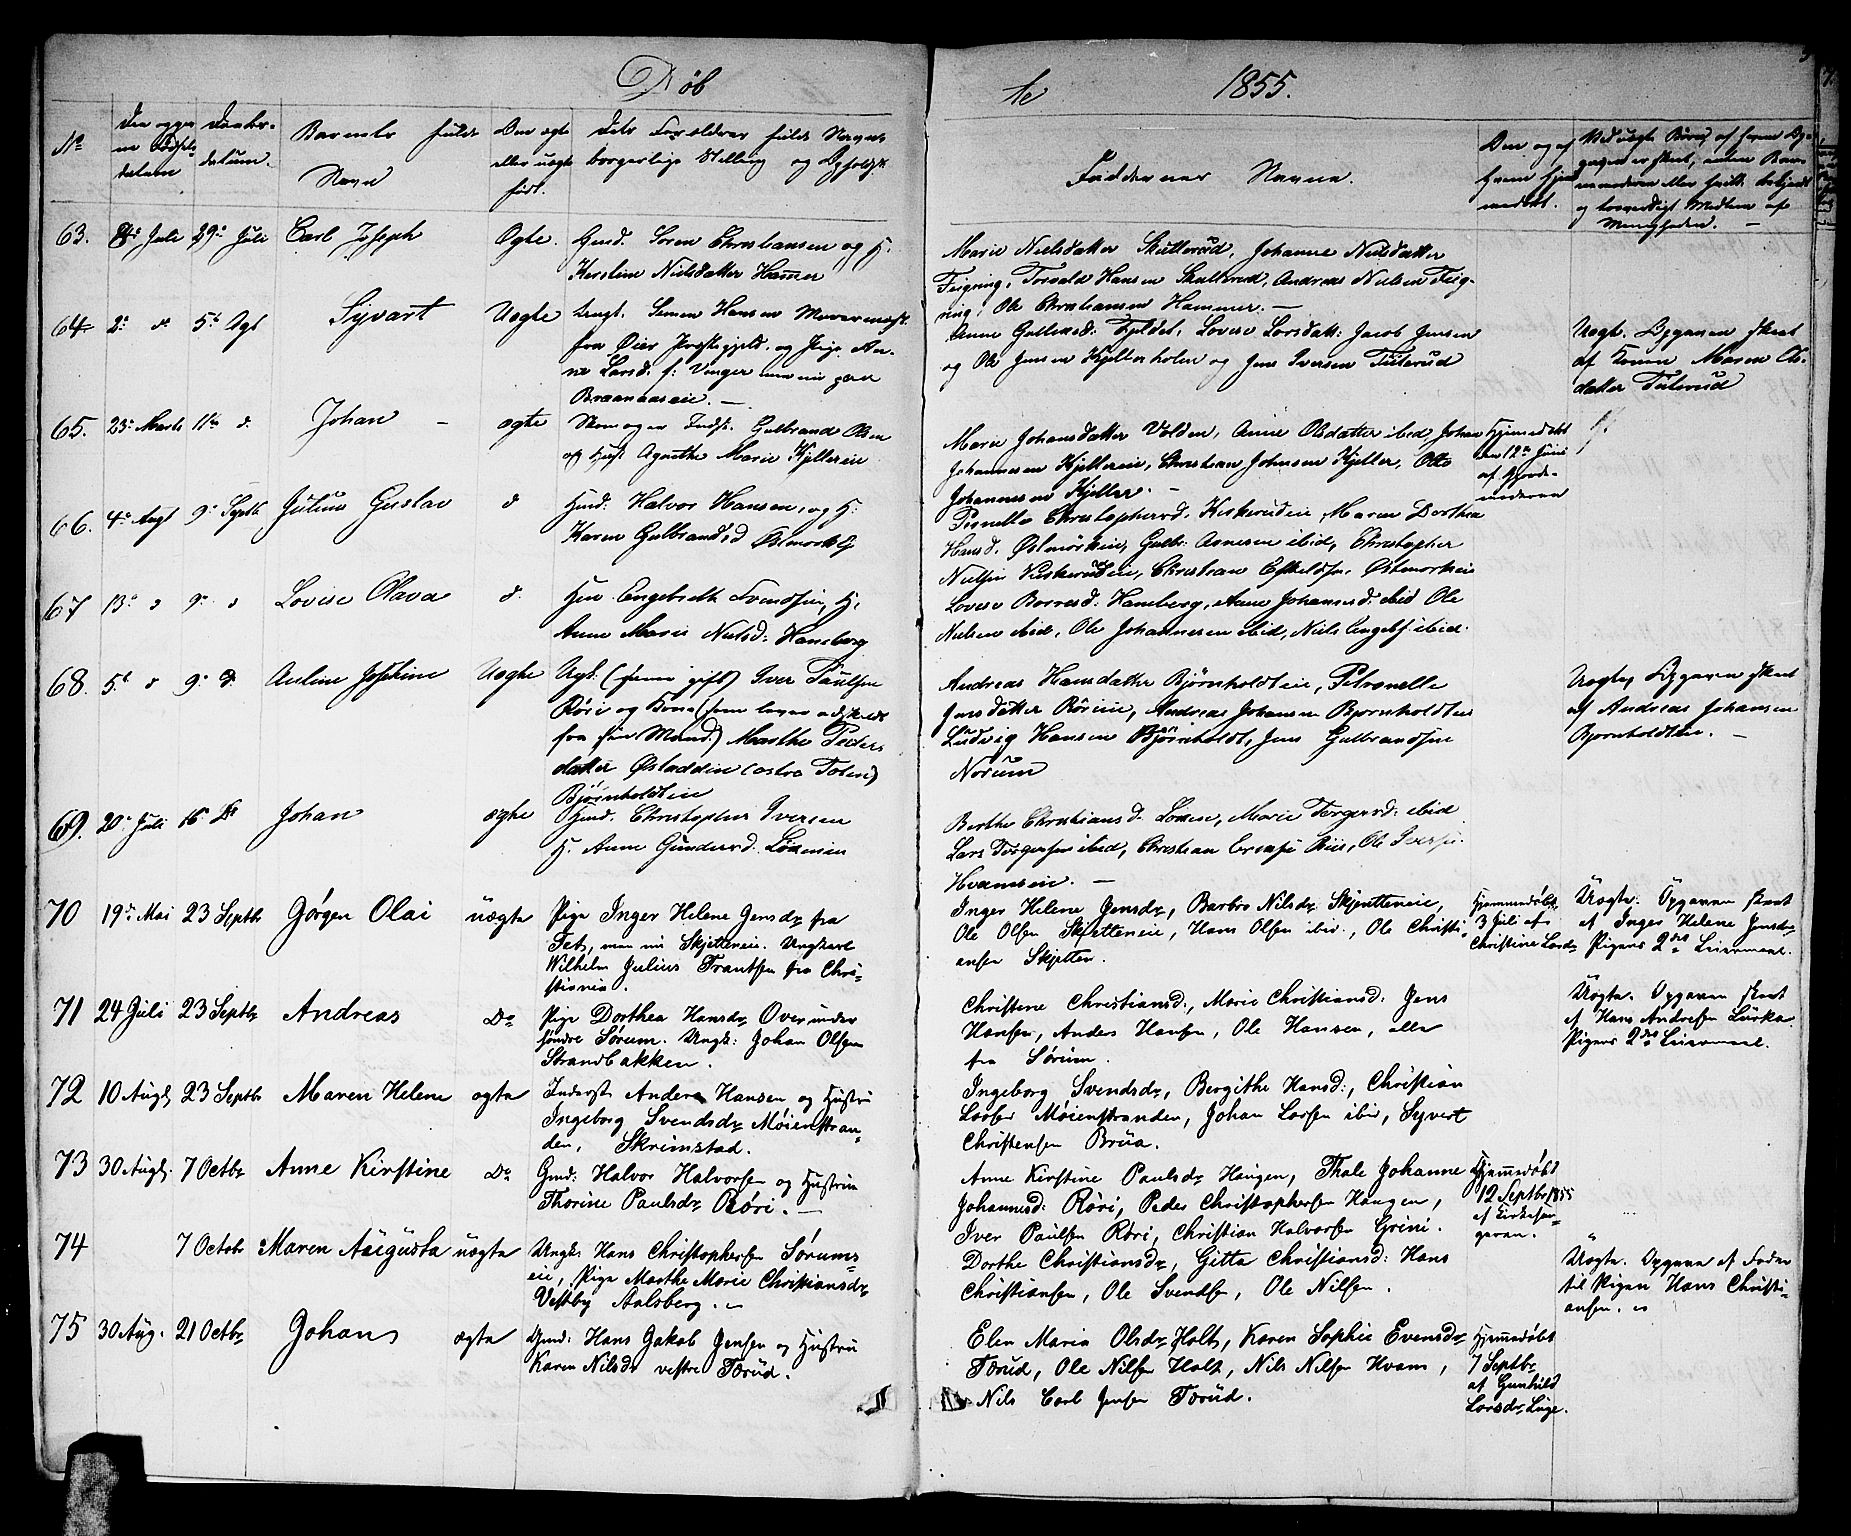 Døb
te 1855.
No
datum
datum.
Barnets fulde
Navn
Den ægte
eller uægte
født.
Dets Forældres fulde Navne
borgerlige Stilling og
Faddernes Navne.
63. 8de Juli 29de Juli Carl Joseph Ægte. Gmd. Søren Christiansen og H.
Kirstine Nielsdatter Hammer
Marie Nielsdatter Skullerud, Johanne Nielsdatter
Feigring, Torvald Hansen Skullerud, Andreas Nielsen Feig-
ring, Ole Christiansen Hammer. —
64 2 d 5te Sept Syvart Uægte Ungk. Simen Hansen
fra Øier Præstegjeld og Pige An-
ne Larsd. f: Vinger
Braanaaseie. —
Anne Gulbransd: Fjeldet, Lovise Larsdatt: Jacob Jensen
og Ole Jensen Kjellerholen og Jens Iversen Tuterud
Uægte. Opgaven skeet
af Konen Maren Ols-
datter Tuterud
65. 23de Marts 11te d. Johan — ægte Skomager Inds. Gulbrand Olsen
og Hust. Agnethe Marie Kjellereie
Marie Johansdatter Volden, Anne Olsdatter ibid, Johan
Johannesen Kjellereie, Christian Johnsen Kjeller, Otto
Johannesen Kjeller. —
Hjemmedøbt
den 12te Juni
af Gjorde-
moderen
66. 4de Augt 9de Septb Julius Gustav d Husm. Halvor Hansen, og H.
Karen Gulbrandsd Østmork
Pernelle Christophersd. Kiskerudeie, Maren Dorthea
Hansd. Østmorkeie, Gulbr. Arnesen ibid, Christopher
Nielsen Kiskerudeie, Christian Eskildsen Østmorkeie
67 13de d 9de d Lovise Olava d. Husm. Engebreth Svendsen, H.
Anne Marie Nielsd: Haneborg
Lovise Borresd: Haneborg, Anne Johannesd. ibid Ole
Nielsen ibid, Ole Johannesen ibid, Niels Engebr. ibid.
68. 5te d 9de d. Auline Josephine Uægte Ugt. (før gift) Iver Paulsen
Röri og Kone (som lever adskilt
fra sin Mand) Marthe Peders
datter Østaddin (østre Toten)
Bjørnholdteie
Andrea Hansdatter Bjørnholdteie, Petronelle
Jensdatter Röreie, Andreas Johansen Bjornholdteie
Ludvig Hansen Bjørnholdt, Jens Gulbrandsen
Norum
Uægte, Opgaven skeet
af Andreas Johansen
Bjornholdteie. —
69. 20de Juli 16 Do Johan ægte Husm. Christopher Iversen
H. Anne Gundersd. Løxeneie
Berthe Christiansd. Løxen, Marie Torgersd. ibid
Lars Torgersen ibid, Christian Ris, Ole Iversen
Hvamseie. —
70 19de Mai 23 Septbr Jørgen Olai uægte Pige Inger Helene Jensdr fra
Fet, men nu Skjetteneie. Ungkarl
Wilhelm Julius Frantsen fra Chri-
stiania.
Inger Helene Jensdr, Barbro Nilsdr Skjetteneie,
Ole Olsen Skjetteneie, Hans Olsen ibid., Ole Christi-
ansen Skjetten.
Hjemmedøbt
3 Juli af
Christine Larsdr
Uægte. Opgaven skeet
af Inger Helene Jensdr
Pigens 2det Leiermaal.
71 24 Juli 23 Septbr Andreas Do Pige Dorthea Hansdr Over under
søndre Sørum. Ungk: Johan Olsen
Strandbakken.
Christine Christiansd:, Marie Christiansd: Jens
Hansen, Anders Hansen, Ole Hansen, alle
fra Sørum.
Uægte. Opgaven skeet
af Hans Andresen Lurka
Pigens 2det Leiermaal.
72 10 Augst 23 Septbr Maren Helene ægte Inderst Anders Hansen og Hustru
Ingeborg Svendsdr Møienstran-
den, Skrimstad.
Ingeborg Svendsdr, Bergithe Hansd:, Christian
Larsen Møienstranden, Johan Larsen ibid, Syvert
Christensen Brua.
73 30 Augst. 7 Octbr Anne Kirstine Do Gmd: Halvor Halvorsen og Hustru
Thorine Paulsdr Røri. —
Anne Kirstine Paulsdr Haugen, Thale Johanne
Johannesd: Røri, Peder Christophersen Haugen,
Iver Paulsen Røri, Christian Halvorsen Grini.
Hjemmedøbt
12 Septbr 1855
af Kirkesan-
geren.
74 7 Octobr Maren Augusta uægte Ungk: Hans Christophersen Sørums-
eie, Pige Marthe Marie Christiansdr
Vestby Aalsberg.
Dorthe Christiansdr, Gitta Christiansd: Hans
Christiansen, Ole Svendsen, Ole Nilsen.
Uægte. Opgaven af Fader
til Pigen Hans Christi-
ansen.
75 30 Aug. 21 Octbr Johan ægte Gmd: Hans Jakob Jensen og Hustru
Karen Nilsdr vestre Tærud.
Elen Maria Olsdr Holt, Karen Sophie Evensdr
Tærud, Ole Nilsen Holt, Nils Nilsen Hvam,
Nils Carl Jensen Tærud.
Hjemmedøbt
7 Septbr
af Gunhild
Larsdr Lüge.